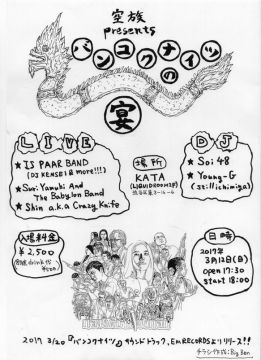 空族
presents
バンコクナイツ
の
宴
LIVE
★ IS PAAR BAND
(DJ KENSEI & more!!!)
★ Suri Yamuhi And
The Babylon Band
★ Shin a.k.a Crazy Knife
場所
KATA
(LIQUIDROOM2F)
DJ
★ Soi 48
★ Young-G
(stillichimiya)
入場料金
¥2,500
別途drink代
¥500
日時
2017年
3月12日(日)
open 17:30
start 18:00
2017 3/20『バンコクナイツ』サウンドトラック、EM RECORDSよりリリース!!
チラシ作成: Big Ben